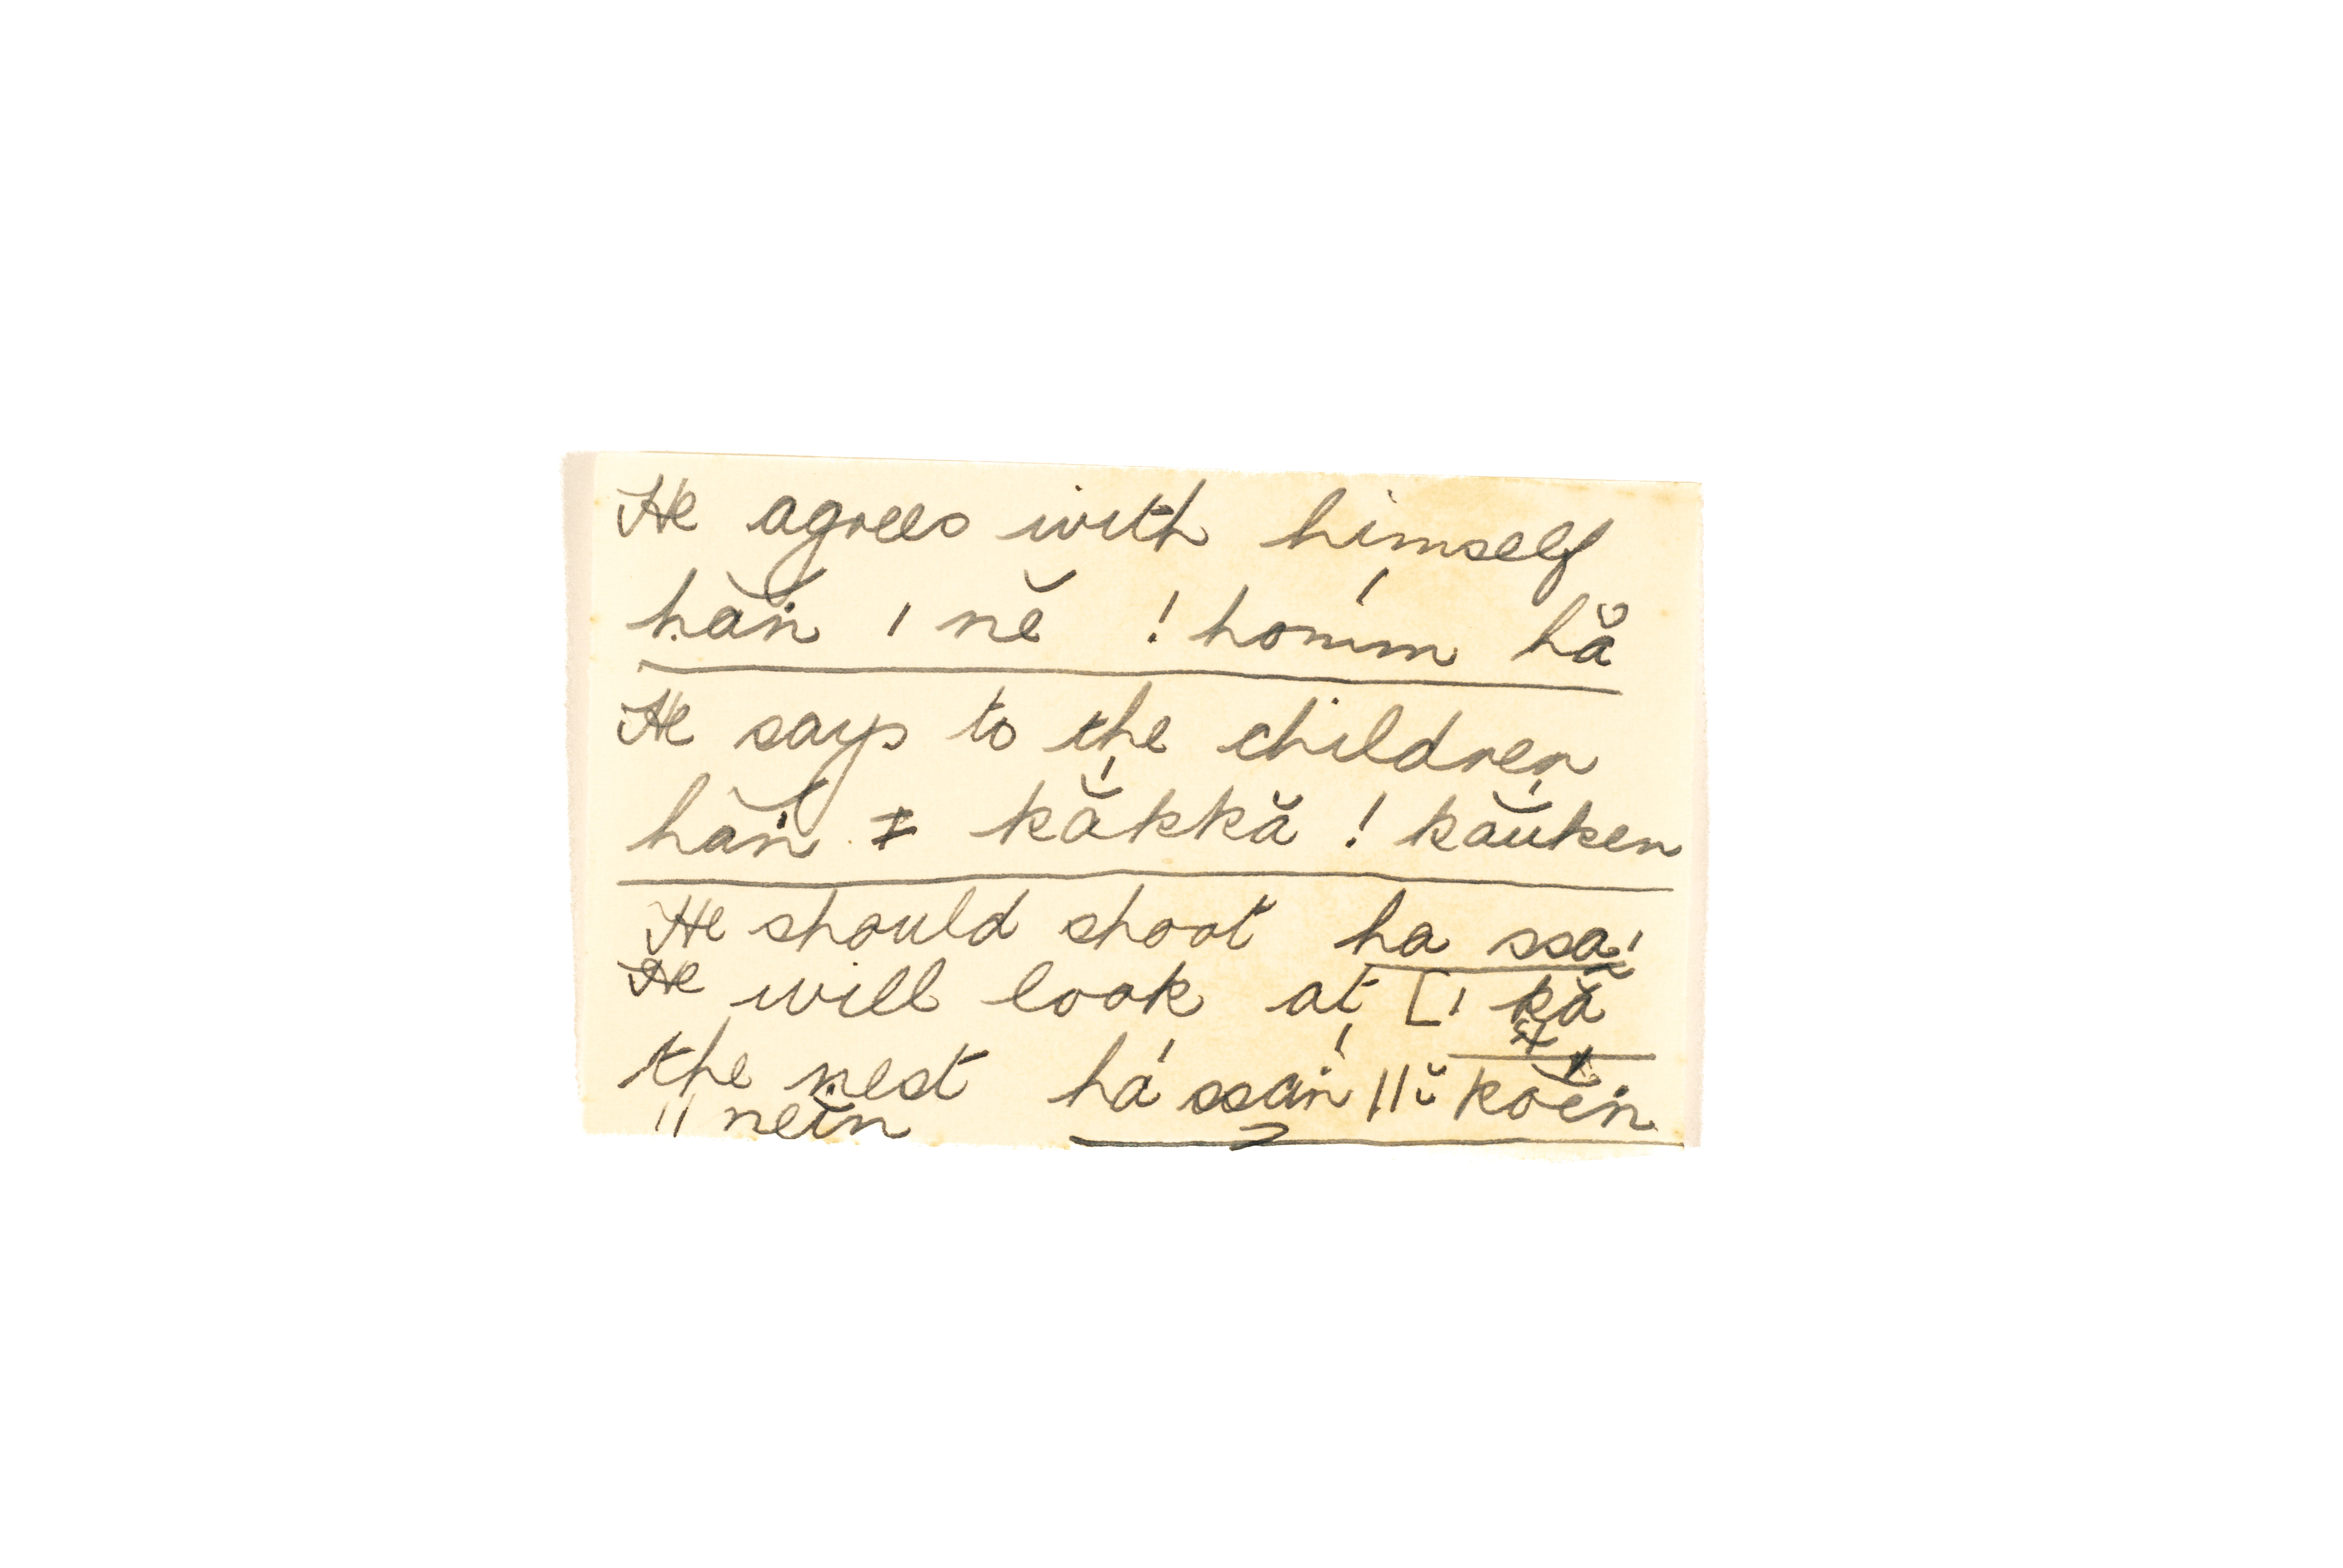 He agrees with himself
hăṅ ı nĕ ! homḿm hă̊
He says to the children
hăṅ ǂ kắkkă ! kắuken
He should shoot ha ssaˈ
He will look at [ı kă
the nest há ssaṅ́ ǁŭ kŏĕṅ
ǁ neĭn